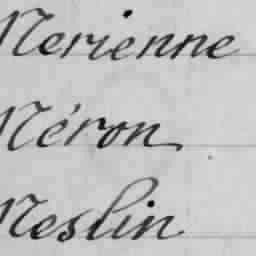 Merienne
Méron
Meslin